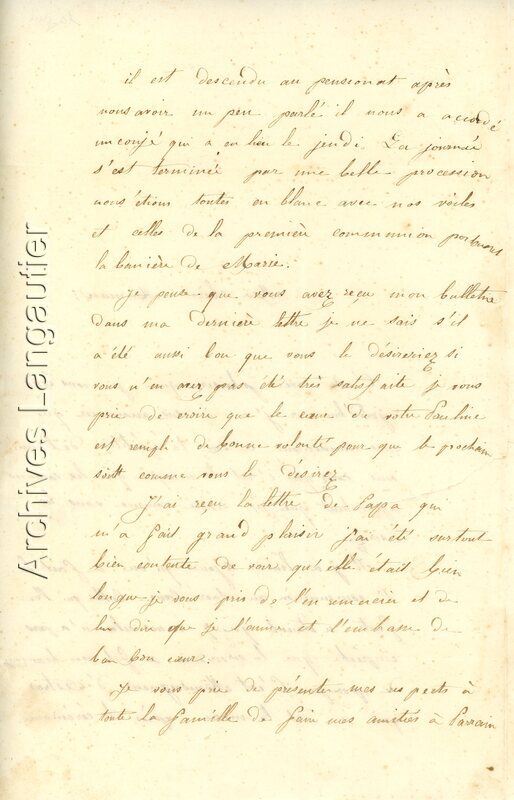 il est descendu au pensionat après
nous avoir un peu parlé il nous a accordé
un conjé qui a eu lieu le jeudi. La journée
s'est terminée par une belle procession
nous étions toutes en blanc avec nos voiles
et celles de la première communion portaient
la banière de Marie.
Je pense que vous avez reçu mon bulletin
dans ma dernière lettre je ne sais s'il
a été aussi bon que vous le désireriez si
vous n'en avez pas été très satisfaite je vous
prie de croire que le cœur de votre Pauline
est rempli de bonne volonté pour que le prochain
soit comme vous le désirez
J'ai reçu la lettre de Papa qui
m'a fait grand plaisir j'ai été surtout
bien contente de voir qu'elle était bien
longue je vous pris de l'en remercier et de
lui dire que je l'aime et l'embrase de
bon cœur.
Je vous prie de présenter mes respects à
toute la famille de faire mes amitiés à Parrain
Archives Langautier